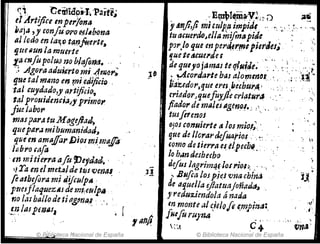 Centella I, Parte,
el Artifice en persona
baja, y con su oro eslabona
al lodo en laço tan fuerte,
que aun la muerte
ya en su polvo no blasona.
Agora advierto mi Amor,
que tal mano en mi edificio
tal cuydado, y artificio,
tal providencia, y primor
fue labor
mas para tu Magestad,
que para mi humanidad,
que en amassar Dios mi massa
lo bro casa
en mi tierra a su Deydad.
Ya en el metal de tus venas
se atesora mi disculpa
pues flaquezas de mi culpa
no las hallo de ti agenas
en las penas,
y ansi
Emblema V.
y ansi, si mi culpa impide
tu acuerdo, ella misma pide
por lo que en perderme pierdes,
que te acuerdes
de que yo jamas te olvide.
Acordarte has alomenos
hazedor, que eres hechura
criador, que fuyste criatura
fiador de males agenos.
tus serenos
ojos convierte a los mios,
que de llorar desvarios
como de tierra es el pecho
lo han deshecho
de sus lagrimas los rios.
Busca los pies una china
de aquella estatua soñada,
y reduziendola a nada
en monte al cielo se empina:
fue su ruyna
C 4
una
© Biblioteca Nacional de España
© Biblioteca Nacional de España